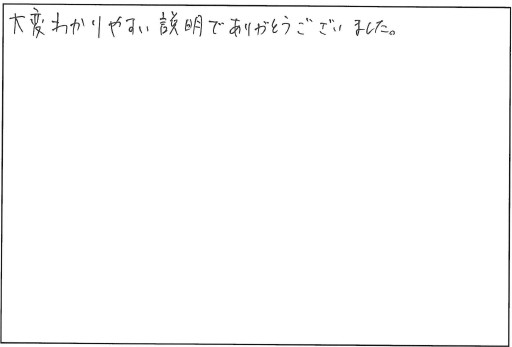 大変わかりやすい説明でありがとうございました。